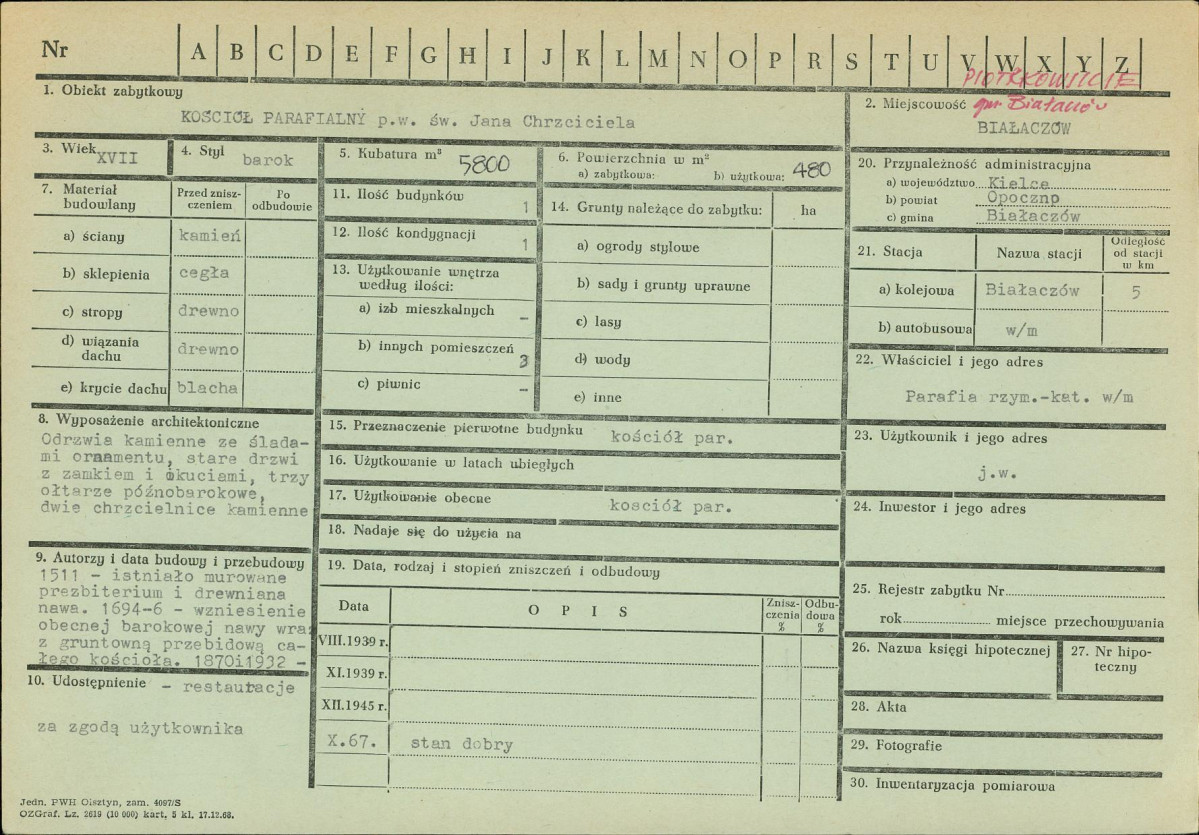 Nr A B C D E F G H I J K L M N O P R S T U V W X Y Z
PIOTRKOWSKIE
1. Obiekt zabytkowy
KOŚCIÓŁ PARAFIALNY p.w. św. Jana Chrzciciela
2. Miejscowość gm. Białaczów
BIAŁACZÓW
3. Wiek XVII
4. Styl barok
5. Kubatura m³ 5800
6. Powierzchnia w m²
a) zabytkowa: b) użytkowa: 480
7. Materiał budowlany
Przed zniszczeniem
Po odbudowie
a) ściany kamień
b) sklepienia cegła
c) stropy drewno
d) wiązania dachu drewno
e) krycie dachu blacha
8. Wyposażenie architektoniczne
Odrzwia kamienne ze ślada-
mi ornamentu, stare drzwi
z zamkiem i okuciami, trzy
ołtarze późnobarokowe,
dwie chrzcielnice kamienne
9. Autorzy i data budowy i przebudowy
1511 - istniało murowane
prezbiterium i drewniana
nawa. 1694-6 - wzniesienie
obecnej barokowej nawy wra
z gruntowną przebidową ca-
łego kościoła. 1870i1932 -
10. Udostępnienie - restauracje
za zgodą użytkownika
11. Ilość budynków 1
12. Ilość kondygnacji 1
13. Użytkowanie wnętrza
według ilości:
a) izb mieszkalnych -
b) innych pomieszczeń 3
c) piwnic -
14. Grunty należące do zabytku: ha
a) ogrody stylowe
b) sady i grunty uprawne
c) lasy
d) wody
e) inne
15. Przeznaczenie pierwotne budynku kościół par.
16. Użytkowanie w latach ubiegłych
17. Użytkowanie obecne kosciół par.
18. Nadaje się do użycia na
19. Data, rodzaj i stopień zniszczeń i odbudowy
Data OPIS Zniszczenia % Odbudowa %
VIII.1939 r.
XI.1939 r.
XII.1945 r.
X.67. stan dobry
20. Przynależność administracyjna
a) województwo Kielce
b) powiat Opocznp
c) gmina Białaczów
21. Stacja Nazwa stacji Odległość od stacji w km
a) kolejowa Białaczów 5
b) autobusowa w/m
22. Właściciel i jego adres
Parafia rzym.-kat. w/m
23. Użytkownik i jego adres
j.w.
24. Inwestor i jego adres
25. Rejestr zabytku Nr
rok miejsce przechowywania
26. Nazwa księgi hipotecznej
27. Nr hipo-
teczny
28. Akta
29. Fotografie
30. Inwentaryzacja pomiarowa
Jedn. PWH Olsztyn, zam. 4097/S
OZGraf. Lz. 2619 (10 000) kart. 5 kl. 17.12.68.